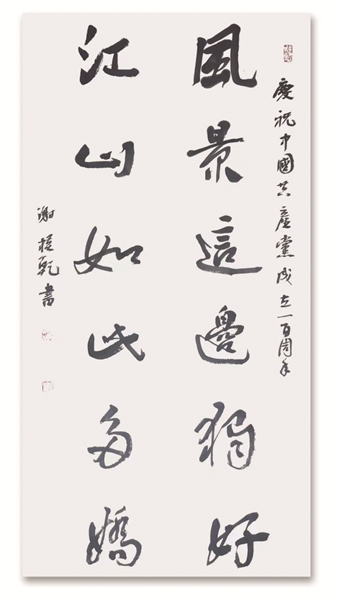 慶祝中國共產黨成立一百周年
風景這邊獨好
江山如此多嬌
謝援乾書